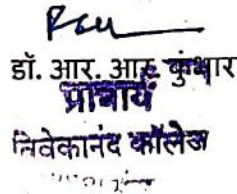 डॉ. आर. आर. कुंभार
प्राचार्य
विवेकानंद कॉलेज